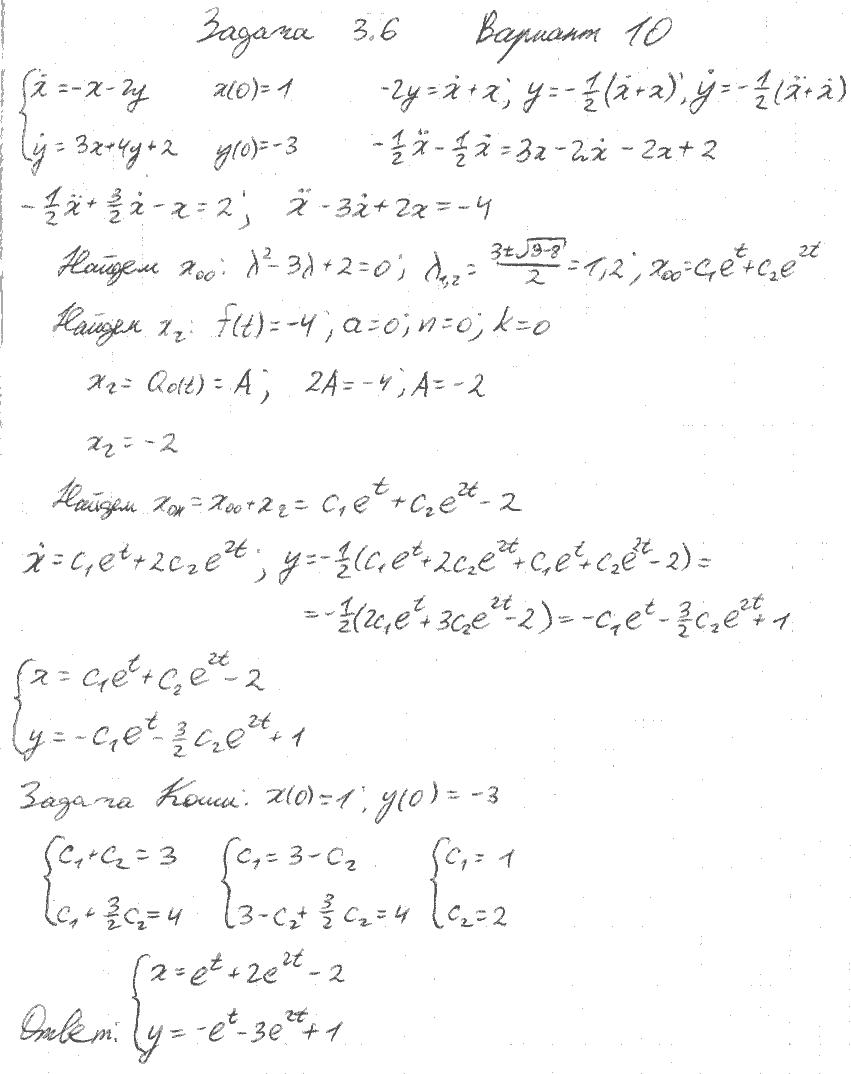 Задача 3.6 Вариант 10
{ẋ = -x - 2y x(0)=1 -2y = ẋ + x; y = -1/2(ẋ+x); ẏ = -1/2(ẍ+ẋ)
{ẏ = 3x+4y+2 y(0)=-3 -1/2ẍ - 1/2ẋ = 3x - 2ẋ - 2x + 2
-1/2ẍ + 3/2ẋ - x = 2; ẍ - 3ẋ + 2x = -4
Найдем x₀₀: λ² - 3λ + 2 = 0; λ₁,₂ = (3±√(9-8))/2 = 1,2; x₀₀ = c₁eᵗ + c₂e²ᵗ
Найдем x₂: f(t) = -4; a=0; n=0; k=0
x₂ = Q₀(t) = A; 2A = -4; A = -2
x₂ = -2
Найдем xₒₙ = x₀₀ + x₂ = c₁eᵗ + c₂e²ᵗ - 2
ẋ = c₁eᵗ + 2c₂e²ᵗ; y = -1/2(c₁eᵗ + 2c₂e²ᵗ + c₁eᵗ + c₂e²ᵗ - 2) =
= -1/2(2c₁eᵗ + 3c₂e²ᵗ - 2) = -c₁eᵗ - 3/2c₂e²ᵗ + 1
{x = c₁eᵗ + c₂e²ᵗ - 2
{y = -c₁eᵗ - 3/2c₂e²ᵗ + 1
Задача Коши: x(0)=1; y(0) = -3
{c₁+c₂ = 3 {c₁ = 3 - c₂ {c₁ = 1
{c₁ + 3/2c₂ = 4 {3 - c₂ + 3/2c₂ = 4 {c₂ = 2
{x = eᵗ + 2e²ᵗ - 2
Ответ: {y = -eᵗ - 3e²ᵗ + 1